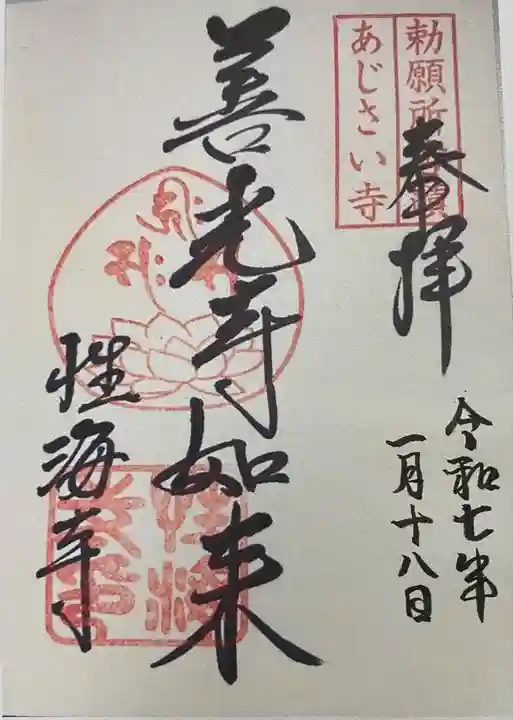 勅願所
あじさい寺
奉拝
令和七年
一月十八日
善光寺如来
性海寺